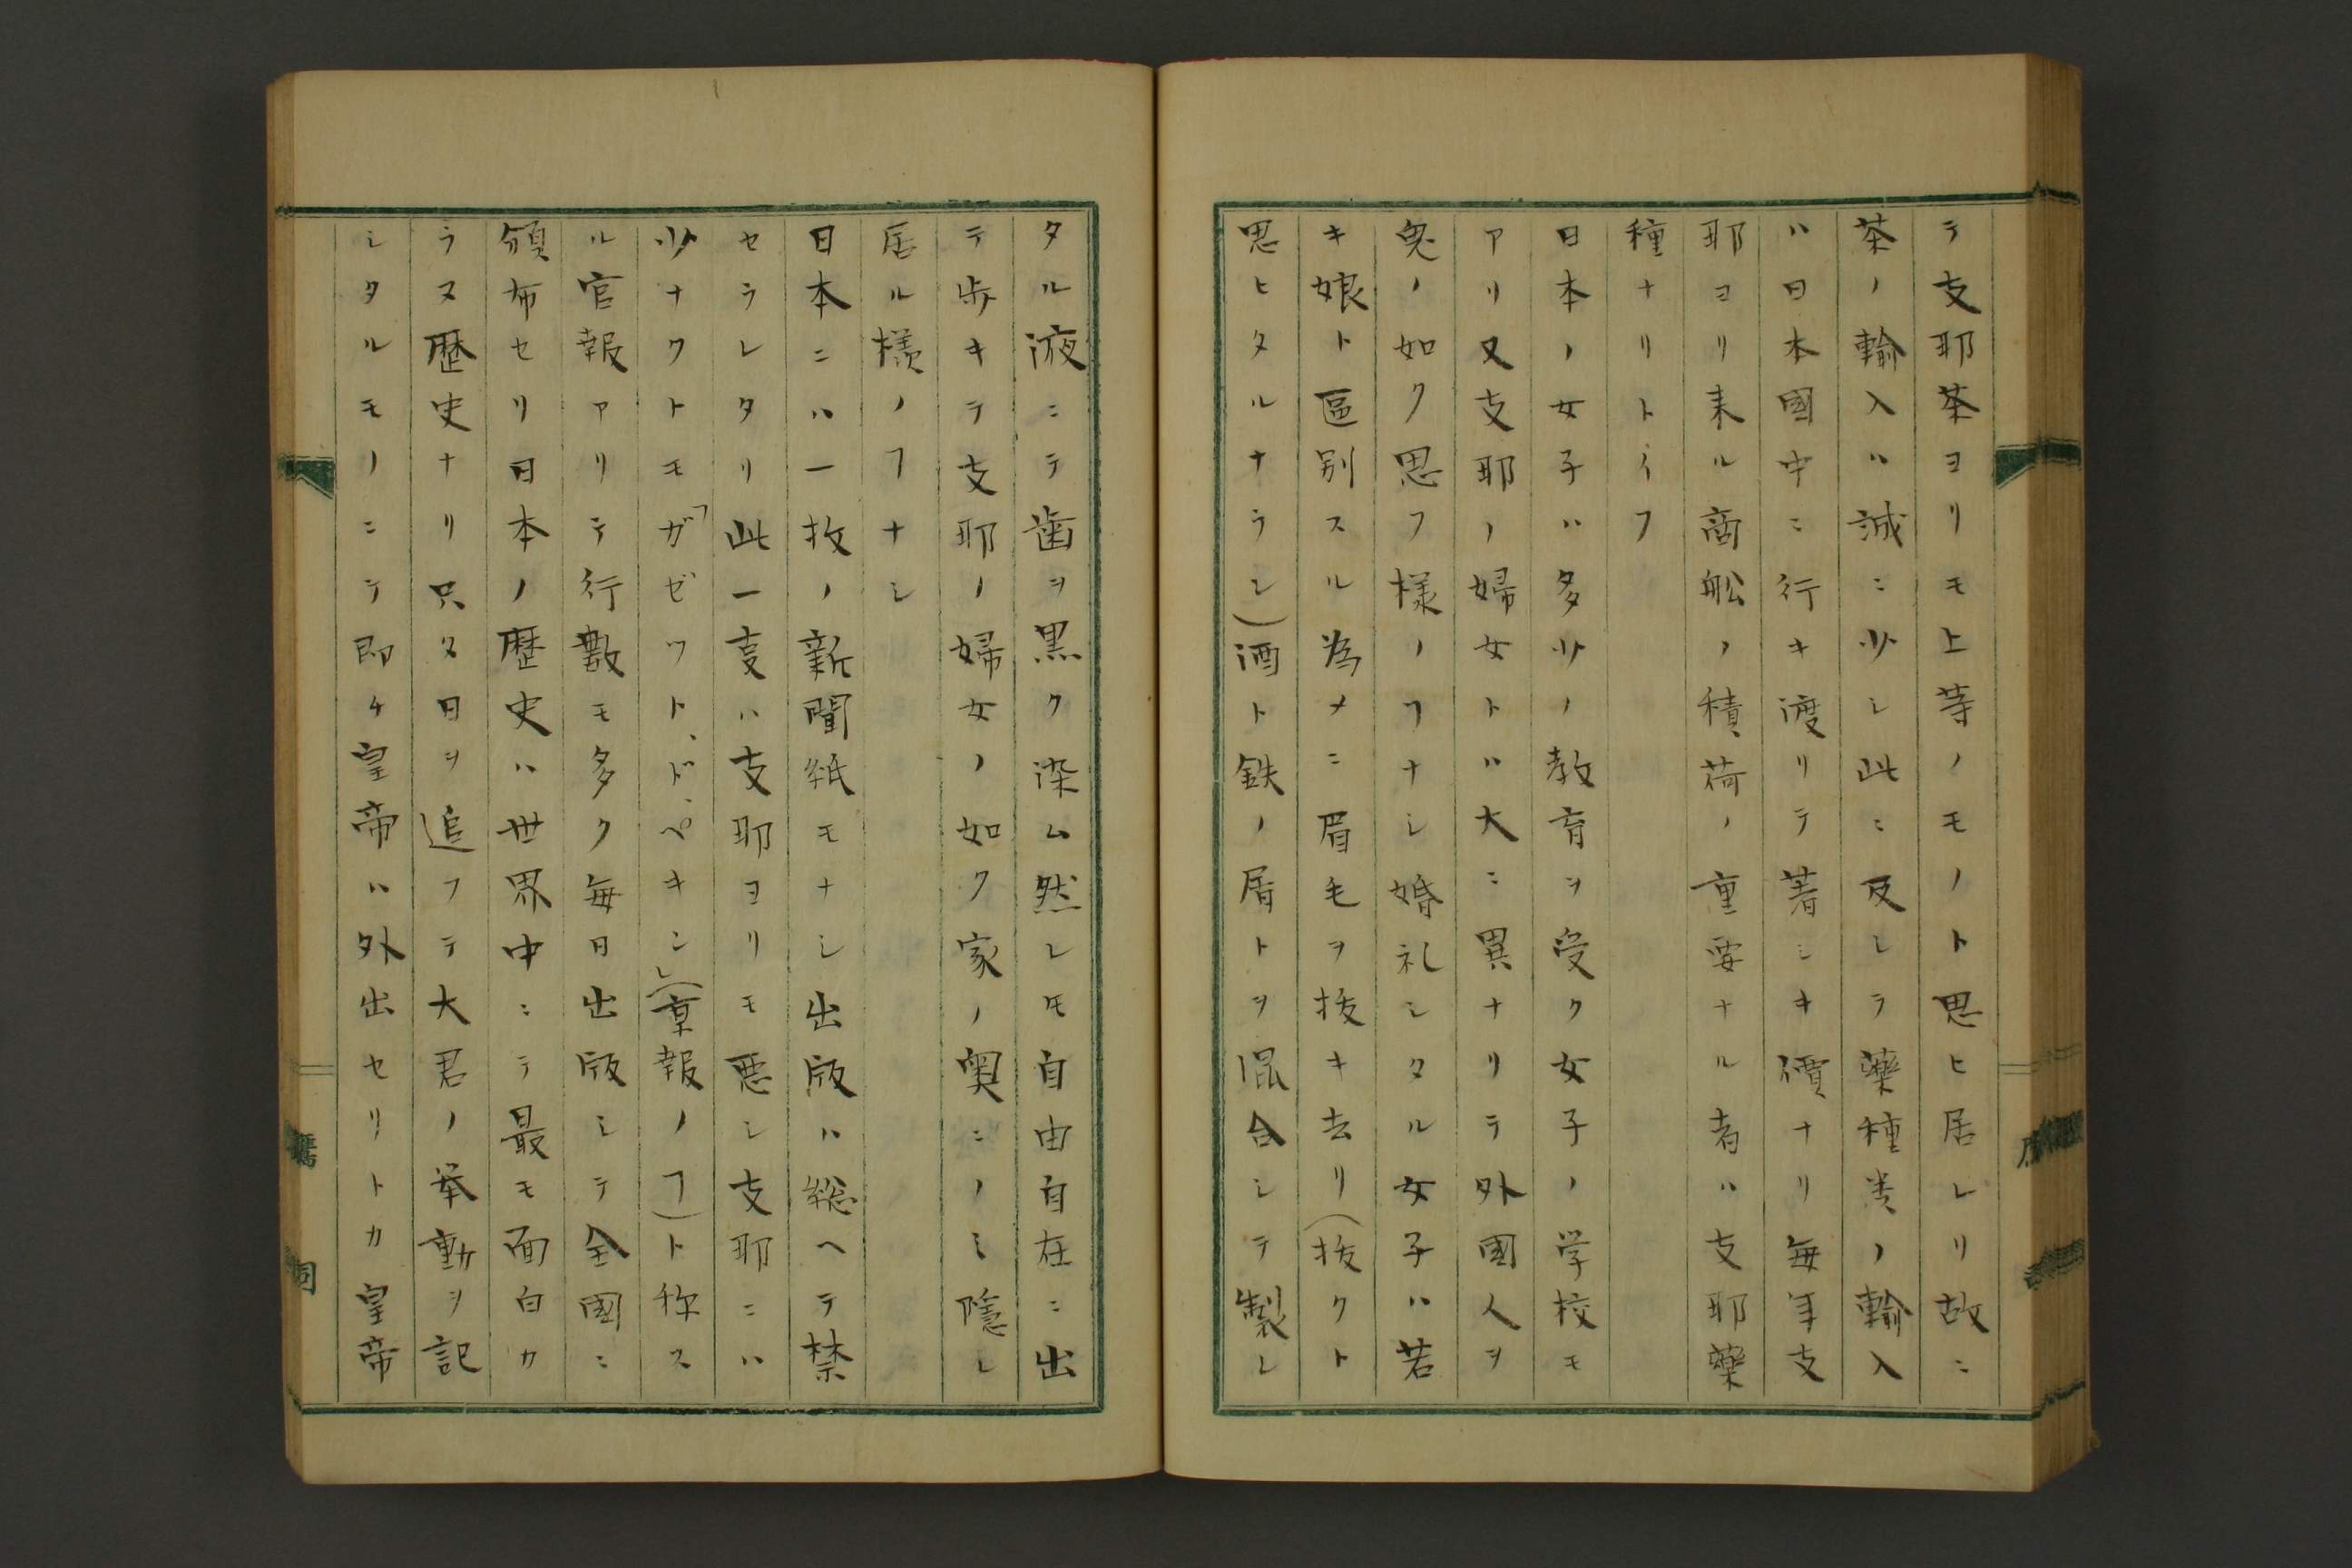 テ支耶茶ヨリモ上等ノモノト思ヒ居レリ故ニ
茶ノ輸入ハ誠ニ少シ此ニ反シテ藥種類ノ輸入
ハ日本國中ニ行キ渡リテ著シキ價ナリ毎年支
耶ヨリ来ル商舩ノ積荷ノ重要ナル者ハ支耶藥
種ナリトイフ
日本ノ女子ハ多少ノ教育ヲ受ク女子ノ学校モ
アリ又支耶ノ婦女トハ大ニ異ナリテ外國人ヲ
鬼ノ如ク思フ様ノヿナシ婚礼シタル女子ハ若
キ娘ト區別スル為メニ眉毛ヲ抜キ去リ(抜クト
思ヒタルナラン)酒ト鉄ノ屑トヲ混合シテ製シ
タル液ニテ歯ヲ黒ク染ム然レ𪜈自由自在ニ出
テ歩キテ支耶ノ婦女ノ如ク家ノ奥ニノミ隱レ
居ル様ノヿナシ
日本ニハ一枚ノ新聞紙モナシ出版ハ総ヘテ禁
セラレタリ此一叓ハ支耶ヨリモ悪シ支耶ニハ
少ナクトモ「ガゼツト、ド、ペキン」(京報ノヿ)ト称ス
ル官報アリテ行數モ多ク毎日出版シテ全國ニ
頒布セリ日本ノ歴史ハ世界中ニテ最モ面白カ
ラヌ歴史ナリ只タ日ヲ追フテ大君ノ挙動ヲ記
シタルモノニテ即チ皇帝ハ外出セリトカ皇帝